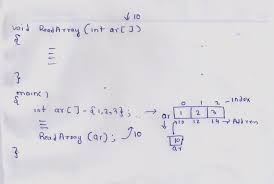 ↓10
void ReadArray (int ar[])
{
}
main()
{
int ar[] = {1,2,3};
0 1 2 → Index
ar → 1 2 3
10 12 14 → Address
ReadArray (ar);
10
10
ar
}